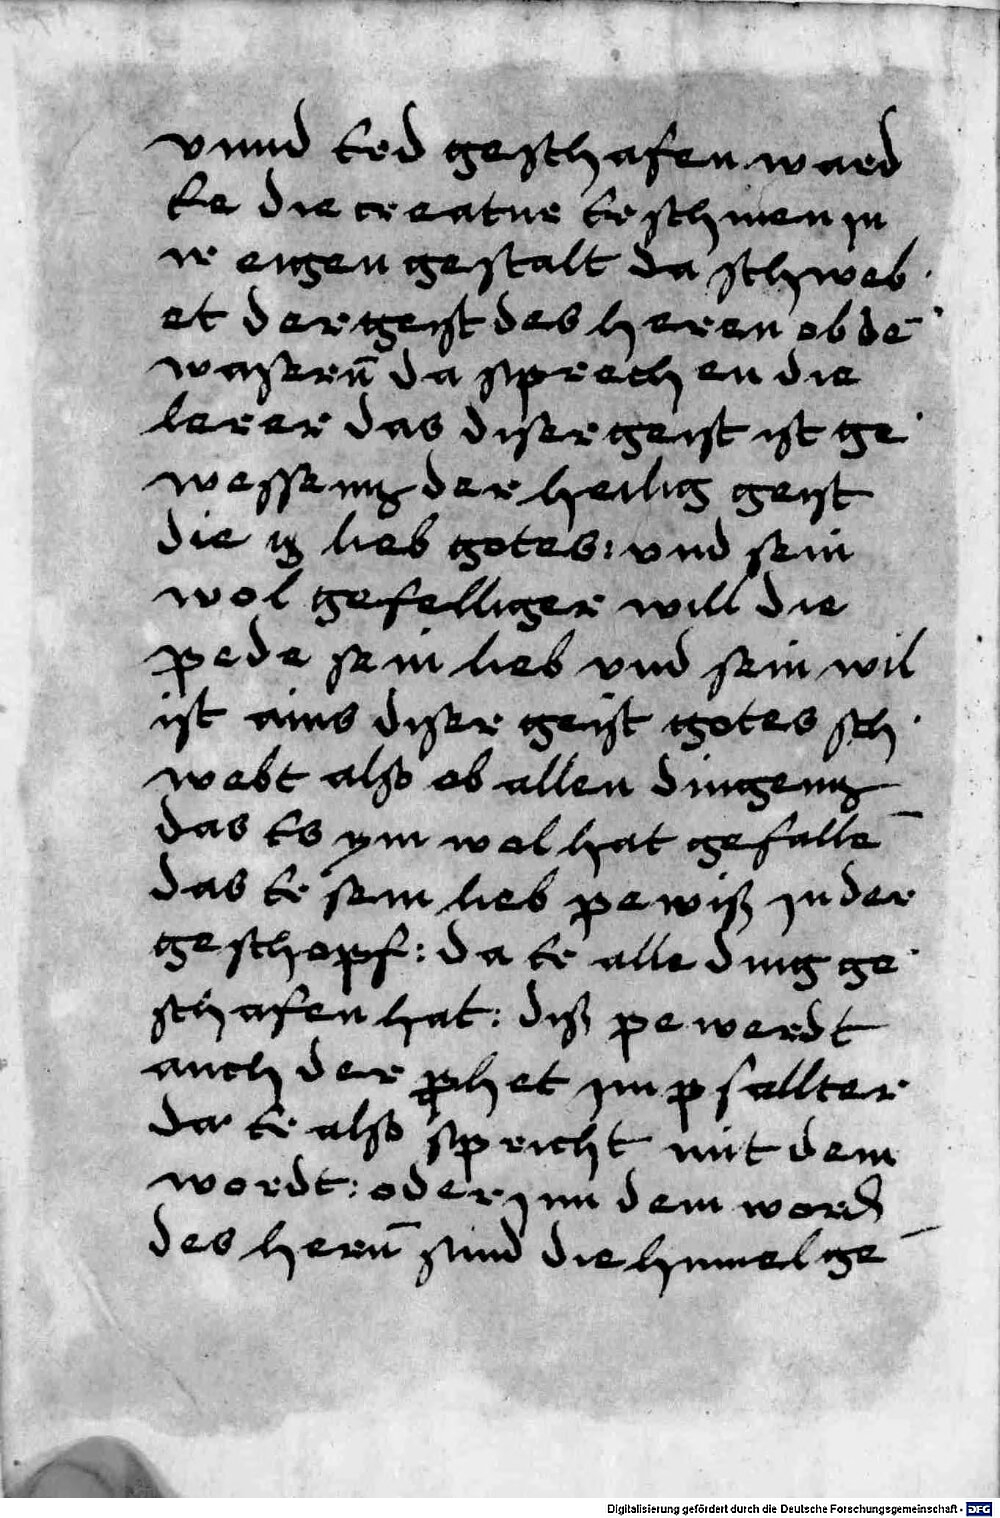 vnnd erd geschafen ward
Ee die creatur erschinen jn
ir eigen gestalt da schweb
et der geist des heren ob dē
wasern̄ da sprechen die
lerer das diser geist ist ge
wessenn der heilig geist
die ig lieb gotes: vnd sein
wol gefelliger will die
pede sein lieb vnd sein wil
ist ains diser geist gotes sch
webt also ob allen dingenn
das es ym wol hat gefallē
das er sein lieb pewiß jn der
geschopf: da er alle ding ge
schafen hat: diß pewerdt
auch der phet jm psallter
da er also spricht mit dem
wordt: oder jnn dem word
des hern̄ sind die himel ge
Digitalisierung gefördert durch die Deutsche Forschungsgemeinschaft - DFG